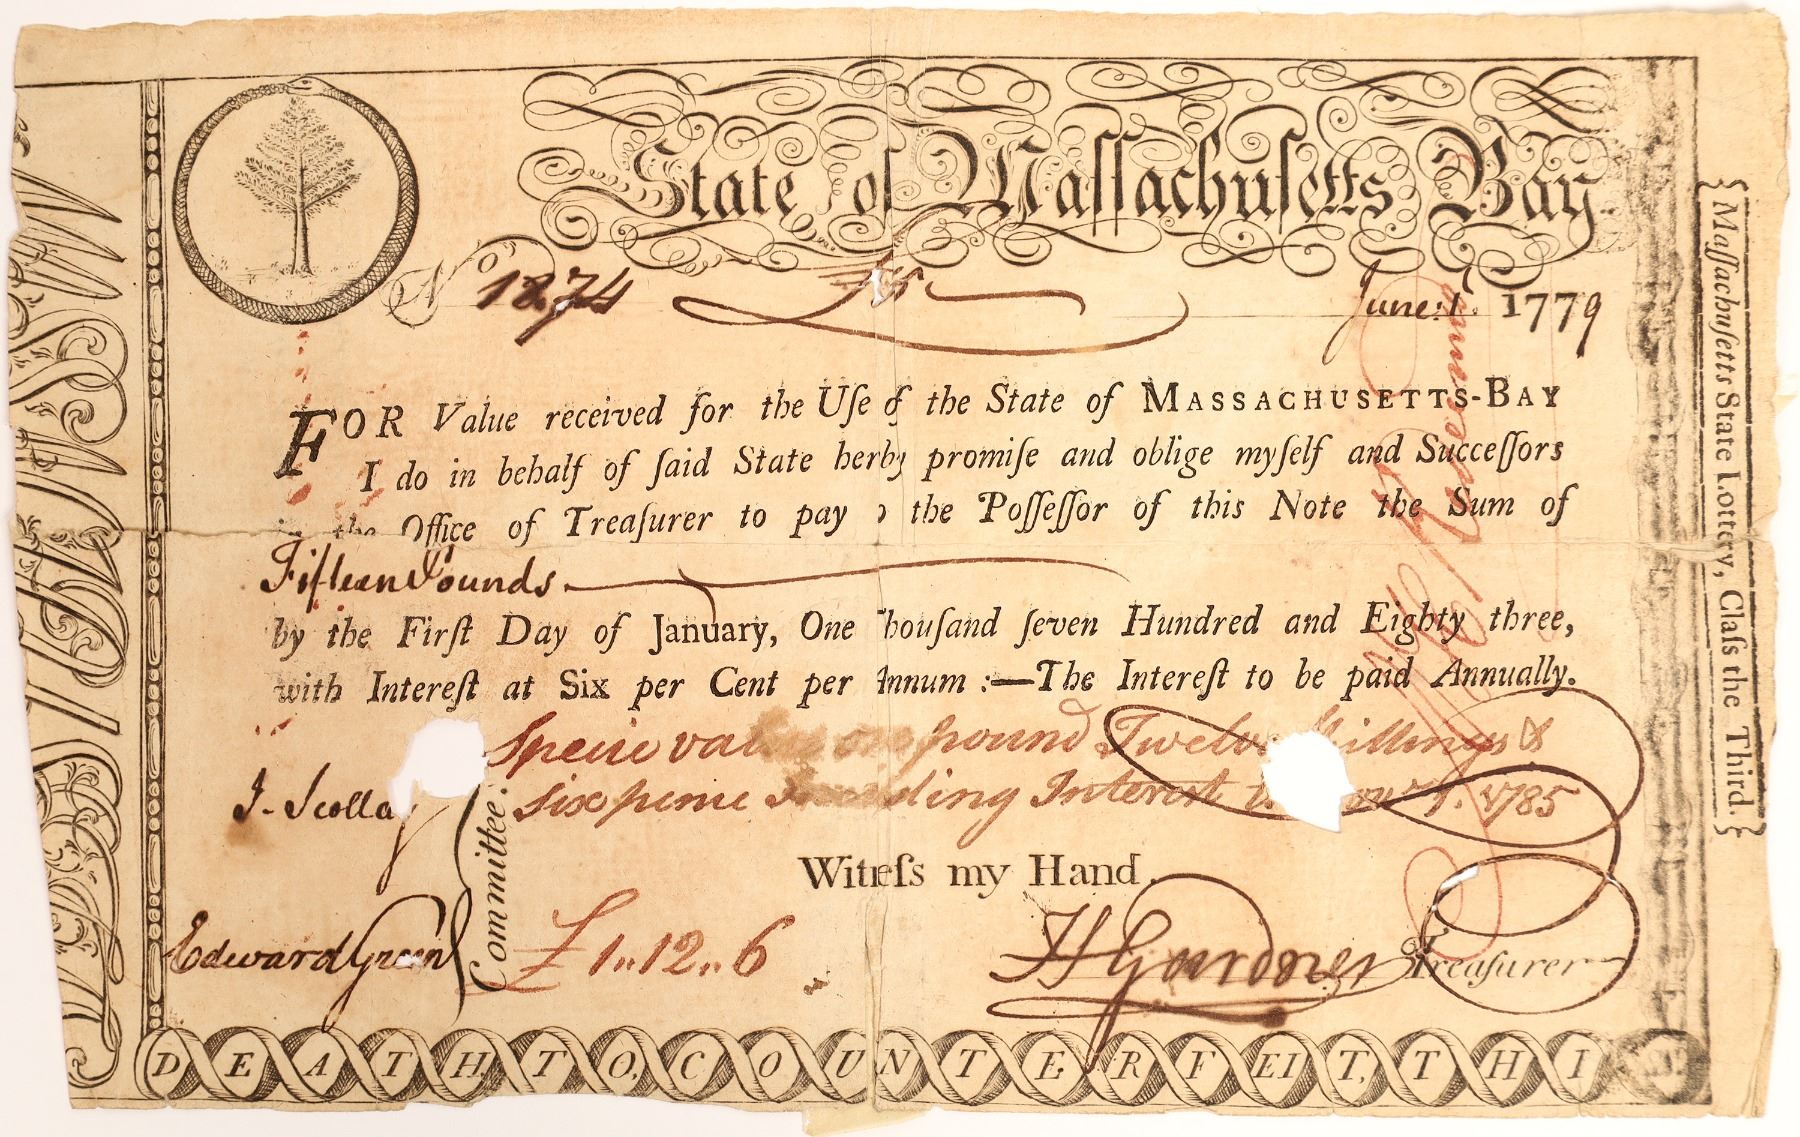 State of Massachusetts Bay
No. 1874
June: 1. 1779
FOR Value received for the Uſe of the State of MASSACHUSETTS-BAY
I do in behalf of ſaid State herby promiſe and oblige myſelf and Succeſſors
in the Office of Treaſurer to pay the Poſſeſſor of this Note the Sum of
Fifteen Pounds
by the Firſt Day of January, One Thouſand ſeven Hundred and Eighty three,
with Intereſt at Six per Cent per Annum :—The Intereſt to be paid Annually.
Specie value one pound Twelve Shillings &
sixpence Including Interest 1785
J. Scollay
Committee.
Witneſs my Hand.
Edward Green
£1..12..6
H Gardner Treaſurer
DEATH TO, COUNTERFEIT, THIS
Maſſachuſetts State Lottery, Claſs the Third.